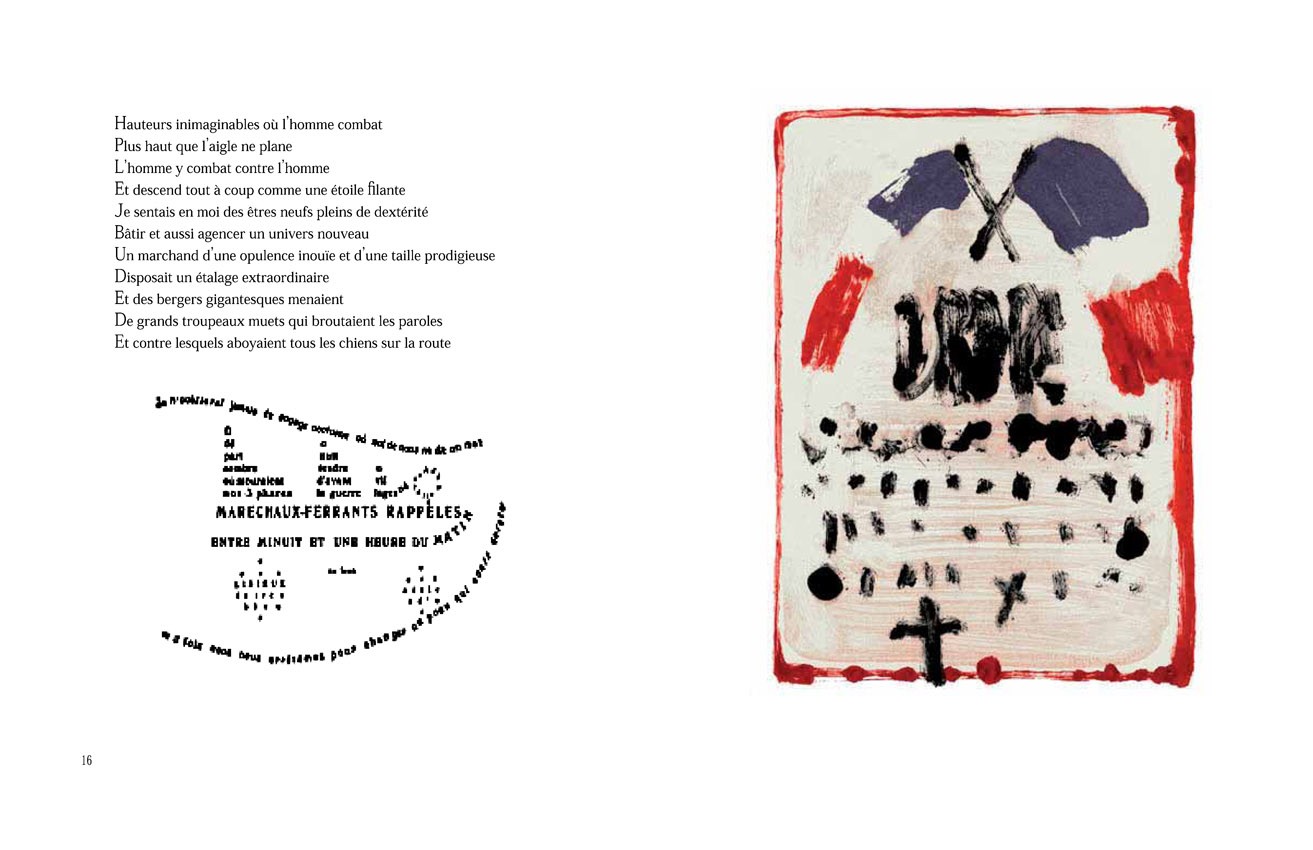 Hauteurs inimaginables où l'homme combat
Plus haut que l'aigle ne plane
L'homme y combat contre l'homme
Et descend tout à coup comme une étoile filante
Je sentais en moi des êtres neufs pleins de dextérité
Bâtir et aussi agencer un univers nouveau
Un marchand d'une opulence inouïe et d'une taille prodigieuse
Disposait un étalage extraordinaire
Et des bergers gigantesques menaient
De grands troupeaux muets qui broutaient les paroles
Et contre lesquels aboyaient tous les chiens sur la route
Je n'oublierai jamais ce voyage nocturne où nul de nous ne dit un mot
Ô
dé
part
sombre
où mouraient
nos 3 phares
ô
nuit
tendre
d'avant
la guerre
ô
vil
lages où
MARÉCHAUX-FERRANTS RAPPELÉS
ENTRE MINUIT ET UNE HEURE DU MATIN
et 3 fois nous nous arrêtâmes pour changer un pneu qui avait éclaté
16